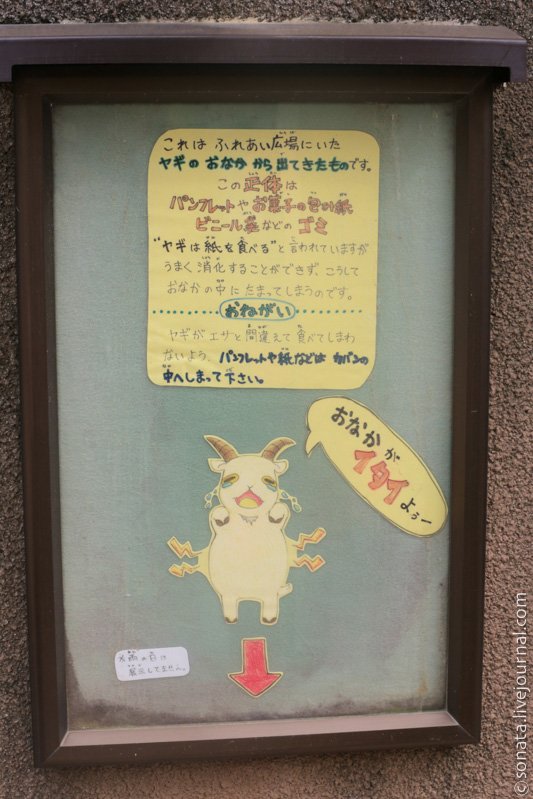 これは ふれあい広場にいた
ヤギの おなか から 出てきたものです。
この 正体は
パンフレットや お菓子の包み紙
ビニール袋などの ゴミ
"ヤギは 紙を食べる" と 言われていますが
うまく 消化することができず、こうして
おなかの中に たまってしまうのです。
おねがい
ヤギが エサと 間違えて 食べてしまわ
ないよう、パンフレットや紙などは カバンの
中へしまって下さい。
おなかが
イタイ
よぅー
※雨の日は
展示してません。
© sonata.livejournal.com